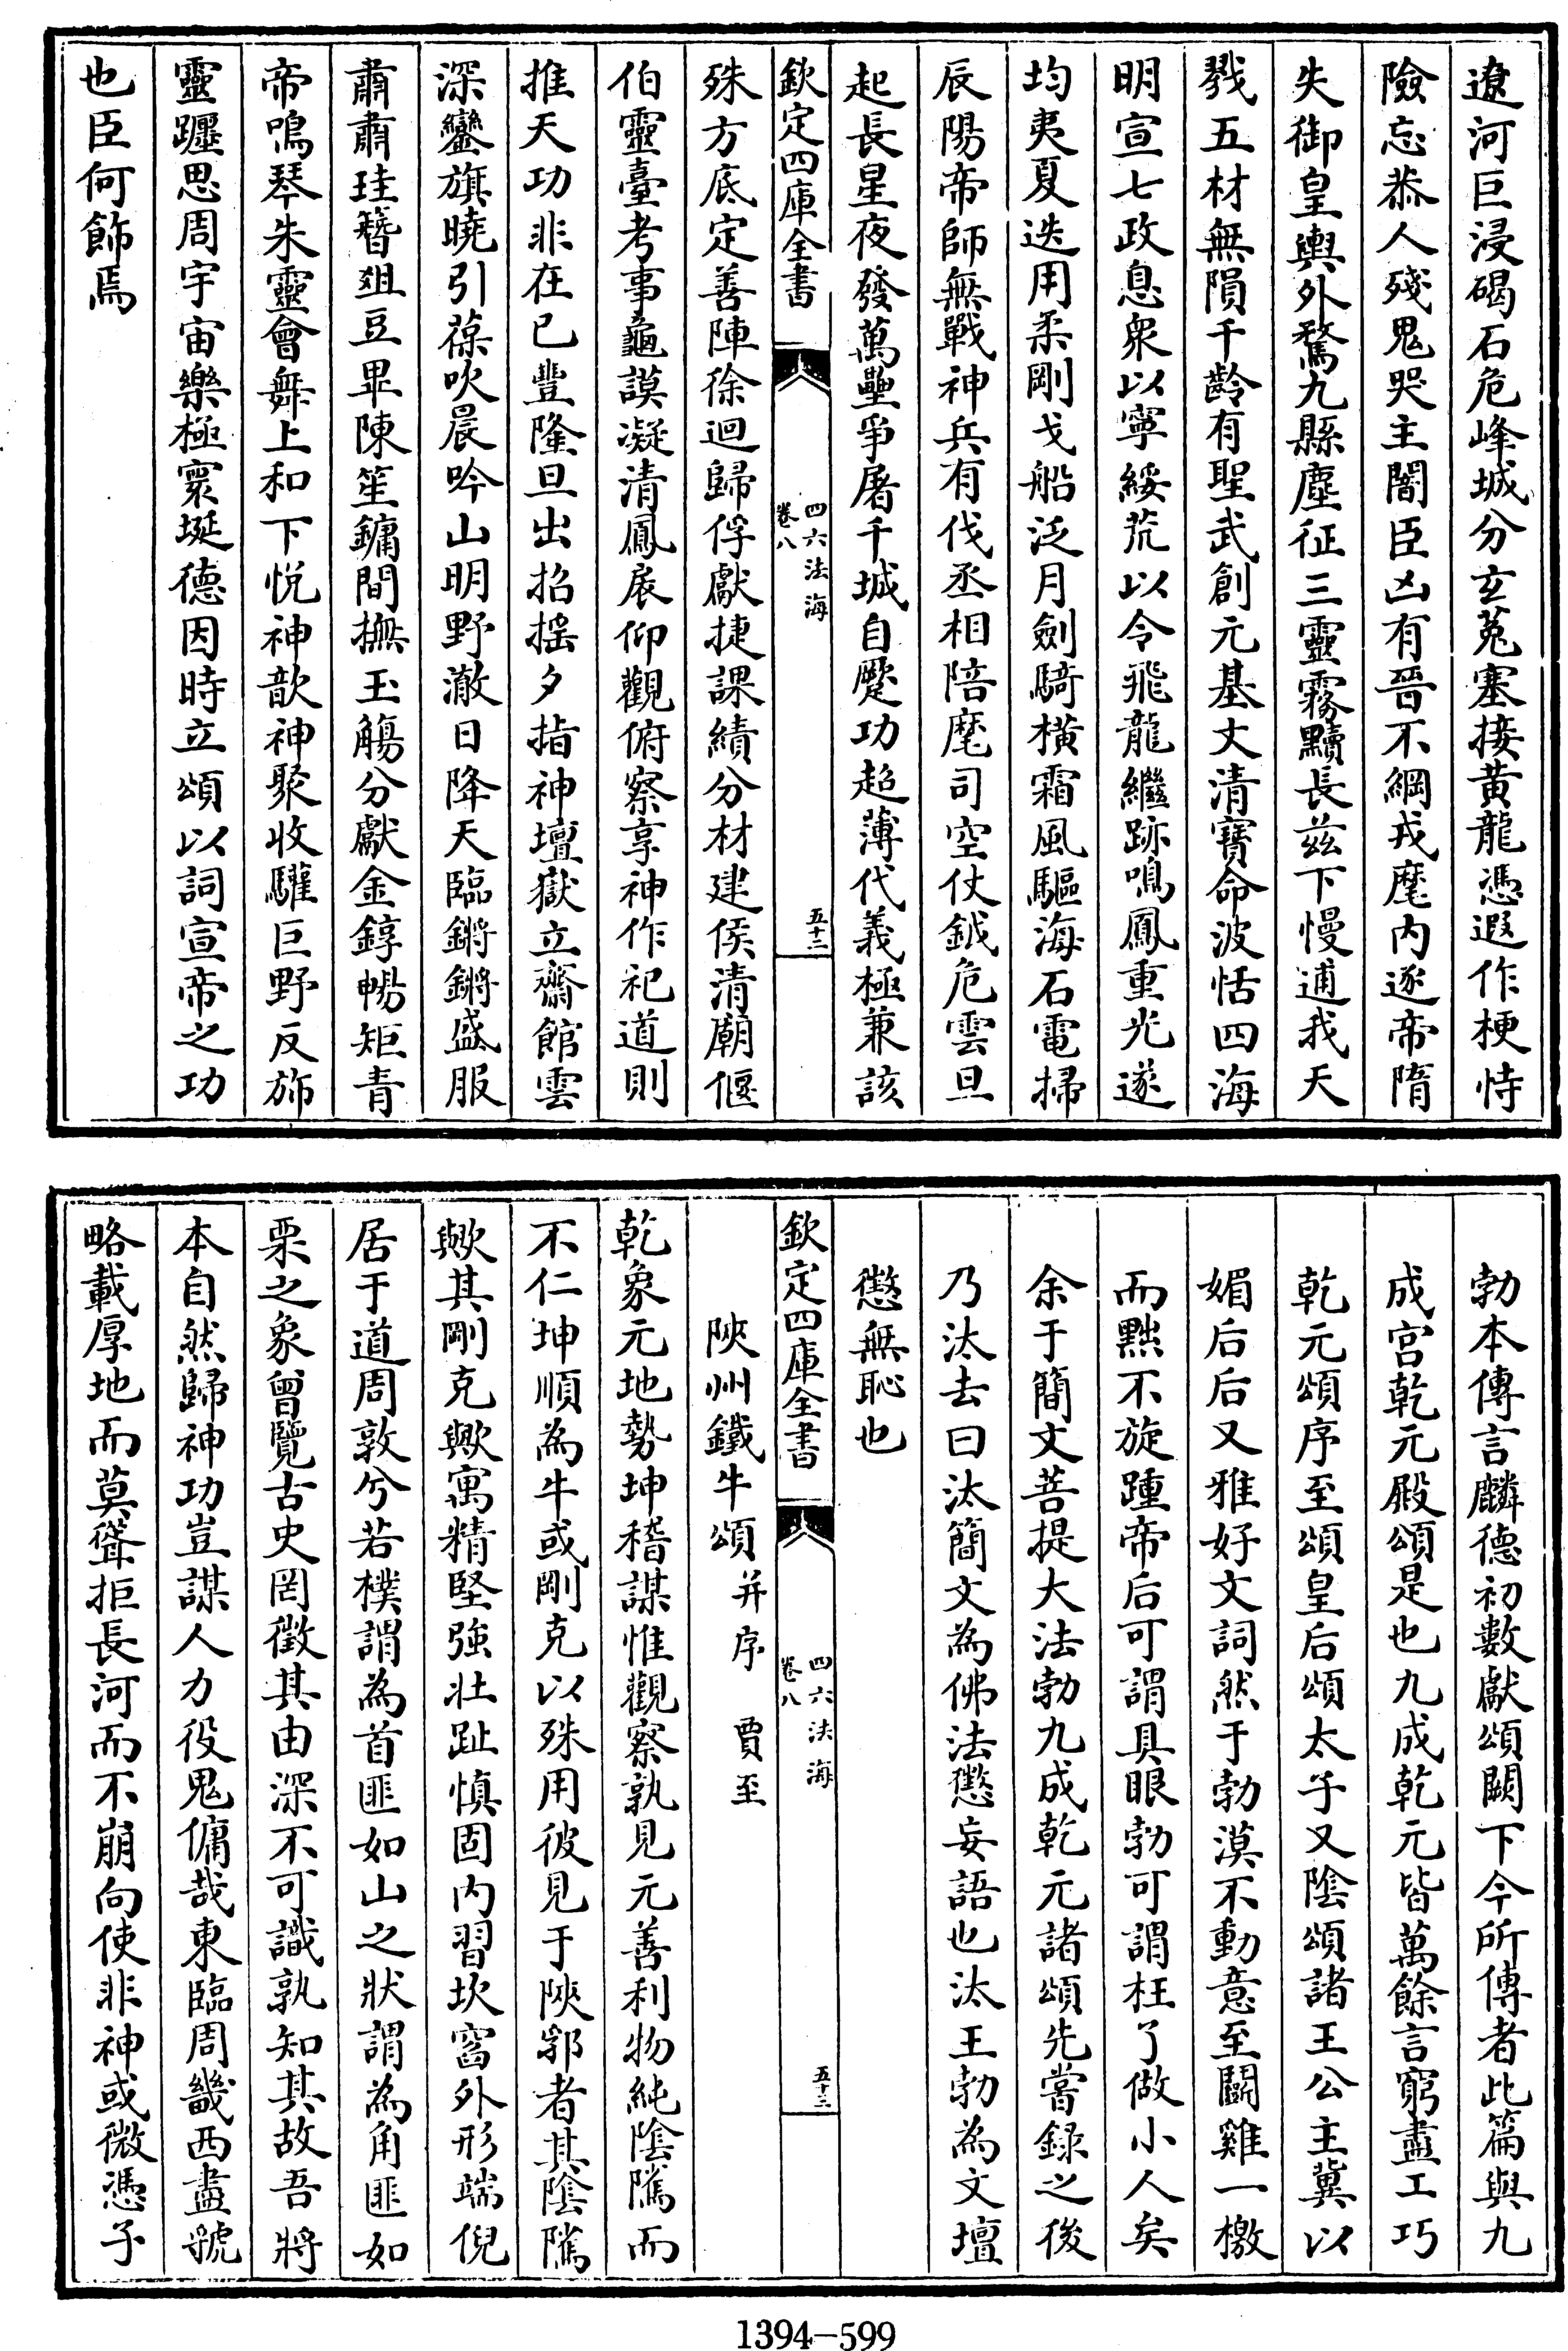 遼河巨浸碣石危峰城分玄菟塞接黄龍憑遐作梗恃
險忘恭人殘鬼哭主闇臣凶有晉不綱戎麾内逐帝隋
失御皇輿外騖九縣塵征三靈霧黷長兹下慢逋我天
戮五材無隕千齡有聖武創元基丈清寶命波恬四海
明宣七政息衆以寧綏荒以令飛龍繼跡鳴鳳重光遂
均夷夏迭用柔剛戈船泛月劍騎横霜風驅海石電掃
辰陽帝師無戰神兵有伐丞相陪麾司空仗鉞危雲旦
起長星夜發萬壘爭屠千城自蹷功超薄代義極兼該
欽定四庫全書
四六法海
卷八
五十二
殊方底定善陣徐迴歸俘獻捷課績分材建侯清廟偃
伯靈臺考事龜謨凝清鳳扆仰觀俯察享神作祀道則
推天功非在已豐隆旦出招摇夕指神壇嶽立齋館雲
深鑾旗曉引葆吹晨吟山明野澈日降天臨鏘鏘盛服
肅肅珪簪爼豆畢陳笙鏞間撫玉觴分獻金錞暢矩青
帝鳴琴朱靈會舞上和下悦神歆神聚收驩巨野反旆
靈躔思周宇宙樂極寰埏德因時立頌以詞宣帝之功
也臣何飾焉
勃本傳言麟德初數獻頌闕下今所傳者此篇與九
成宫乾元殿頌是也九成乾元皆萬餘言窮盡工巧
乾元頌序至頌皇后頌太子又陰頌諸王公主冀以
媚后后又雅好文詞然于勃漠不動意至鬭雞一檄
而黜不旋踵帝后可謂具眼勃可謂枉了做小人矣
余于簡文菩提大法勃九成乾元諸頌先嘗録之後
乃汰去曰汰簡文為佛法懲妄語也汰王勃為文壇
懲無恥也
欽定四庫全書
四六法海
卷八
五十三
陝州鐵牛頌并序　賈至
乾象元地勢坤稽謀惟觀察孰見元善利物純陰騭而
不仁坤順為牛或剛克以殊用彼見于陝郛者其陰騭
歟其剛克歟寓精堅強壯趾慎固内習坎窞外形端倪
居于道周敦兮若樸謂為首匪如山之狀謂為角匪如
栗之象曾覽古史罔徵其由深不可識孰知其故吾將
本自然歸神功豈謀人力役鬼傭哉東臨周畿西盡虢
略載厚地而莫聳拒長河而不崩向使非神或微憑子
1394-599